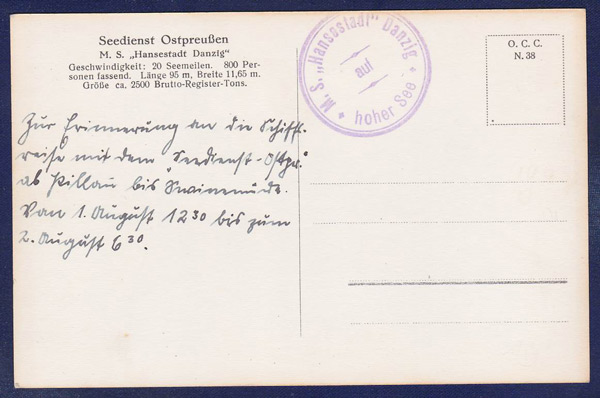 Seedienst Ostpreußen
M. S. „Hansestadt Danzig“
Geschwindigkeit: 20 Seemeilen. 800 Per-
sonen fassend. Länge 95 m, Breite 11,65 m.
Größe ca. 2500 Brutto-Register-Tons.
Zur Erinnerung an die Schiffs-
reise mit dem "Seedienst-Ostpr."
ab Pillau bis Swinemünde.
Von 1. August 12 30 bis zum
2. August 6 30.
M. S. „Hansestadt“ Danzig
auf
hoher See
O. C. C.
N. 38